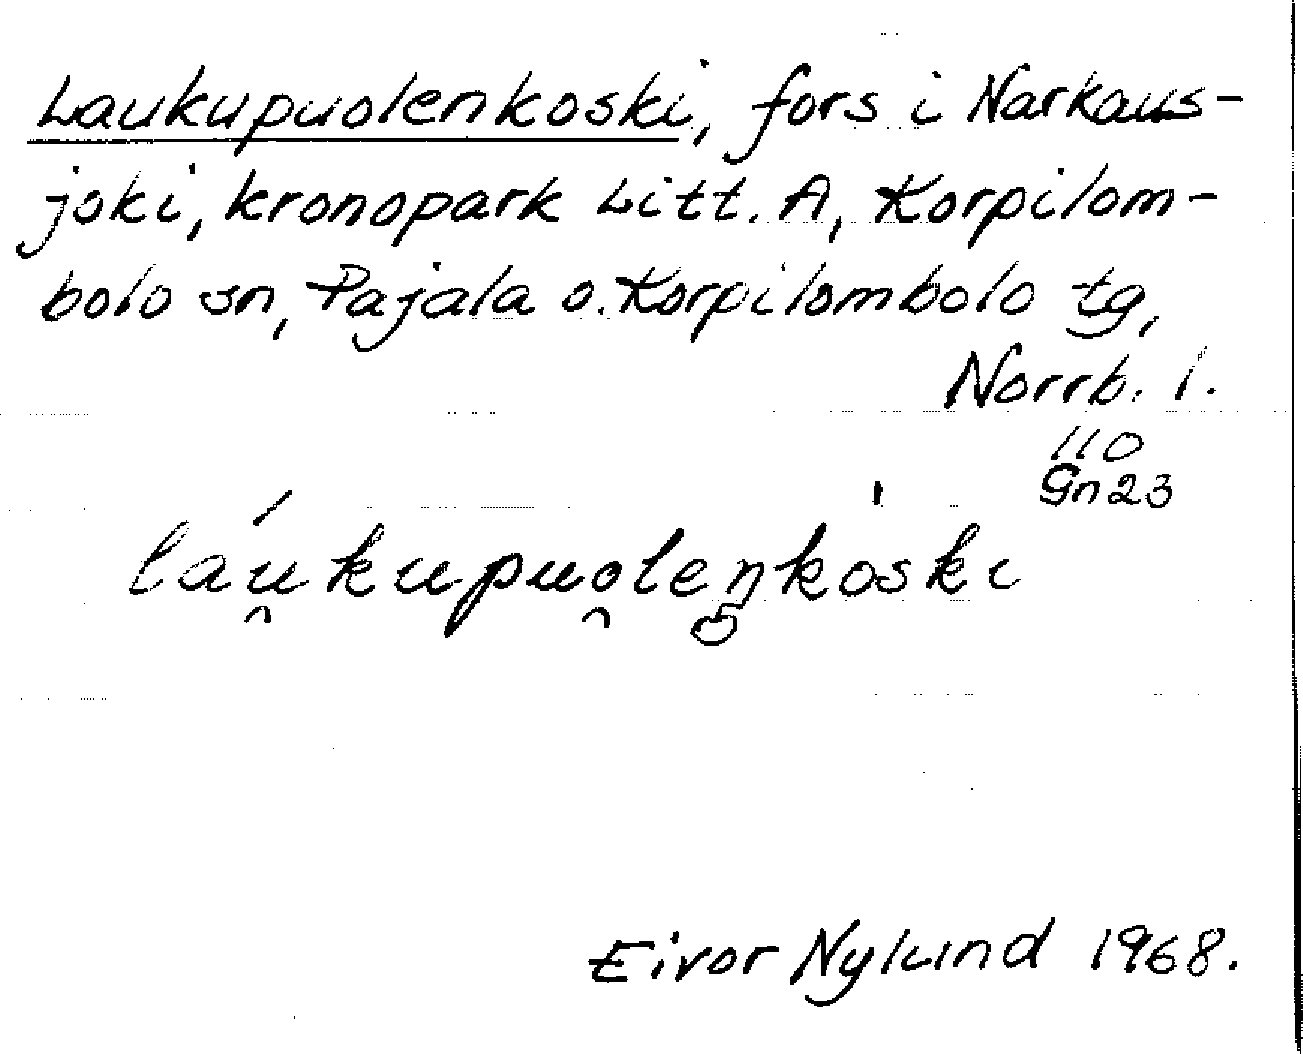 Laukupuolenkoski, fors i Narkaus-
joki, kronopark Litt. A, Korpilom-
bolo sn, Pajala o. Korpilombolo tg,
Norrb. l.
110
Gn23
láu̯kupuo̯leŋkòski
Eivor Nylund 1968.